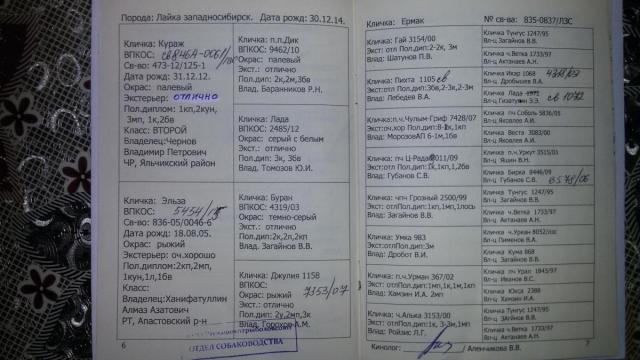 Порода: Лайка западносибирск. Дата рожд: 30.12.14.
Кличка: Кураж
ВПКОС:
Св-во: 473-12/125-1
Дата рожд: 31.12.12.
Окрас: палевый
Экстерьер: ОТЛИЧНО
Пол.диплом: 1кп,2кун,
3мп, 1к,2бв
Класс: ВТОРОЙ
Владелец:Чернов
Владимир Петрович
ЧР, Яльчикский район
Кличка: п.п.Дик
ВПКОС: 9462/10
Окрас: палевый
Экст.: отлично
Пол.дип: 2к,2м,3бв
Влад. Баранников Р.Н.
Кличка: Лада
ВПКОС: 2485/12
Окрас: серый с белым
Экст.: отлично
Пол.дип: 3к, 3бв
Влад: Томозов Ю.И.
Кличка: Эльза
ВПКОС:
Св-во: 836-05/0046-6
Дата рожд: 18.08.05.
Окрас: рыжий
Экстерьер: оч.хорошо
Пол.диплом:2кп,2мп,
1кун,1л,1бв
Класс:
Владелец:Ханифатуллин
Алмаз Азатович
РТ, Апастовский р-н
Кличка: Буран
ВПКОС: 4319/03
Окрас: темно-серый
Экст: отлично
Пол.дип: 2к,2л,2кп
Влад. Загайнов В.В.
Кличка: Джулия 1158
ВПКОС: 7353/07
Окрас: рыжий
Экст: отлично
Пол.дип: 2у,2мп,3к
Влад: Горохов А.М.
ОТДЕЛ СОБАКОВОДСТВА
6
Кличка: Ермак № св-ва: 835-0837/ЛЗС
Кличка: Гай 3154/00
Экст: отл Пол.дип:2-2к, 3м
Влад: Шатунов П.В.
Кличка: Пихта 1105 св
Экст:отл Пол.дип:3бв,2-3к,2-3м
Влад: Лебедев В.А.
Кличка:п.ч.Чулым-Гриф 7428/07
Влад: МорозовАП 6-1м,1бв
Кличка: пч Ц-Рада 011/09
Влад: Губанов С.В.
Кличка: чпч Грозный 2500/99
Экст: отлПол.дип:1кп,1мп,1лось
Влад: Загайнов В.В.
Кличка: Умка 983
Экст:отлПол.дип:3м
Влад: Дробот В.И.
Кличка: п.ч.Урман 367/02
Экст: отлПол.дип:1мп,1к,1м,1кп
Влад: Хамзин И.А. 2мп
Кличка: ч.Алька 3153/00
Экст: отлПол.дип:1к, 3-3м,1мп
Влад: Ройзис Л.Г.
Кличка Тунгус 1247/95
Вл-ц Загайнов В.В.
Кличка ч.Ветка 1733/97
Вл-ц Актанаев А.Н.
Кличка Икар 1068
Вл-ц Дробышев В.А.
Кличка Лада
Вл-ц Гизатуллин Э.Э. св 1072
Кличка пч Соболь 5836/05
Вл-ц Яковлев А.И.
Кличка Веста 3083/00
Вл-ц Яковлев А.И.
Кличка п.ч.Уркут 3515/01
Вл-ц Яшин В.Н.
Кличка Бирка 8446/09
Вл-ц Губанов С.В.
Кличка Тунгус 1247/95
Вл-ц Загайнов В.В.
Кличка ч.Ветка 1733/97
Вл-ц Актанаев А.Н.
Кличка ч.Уркан 8052/лос
Вл-ц Пименов В.А.
Кличка Кума 868
Вл-ц Загайнов В.В.
Кличка пч Урал 1843/97
Вл-ц Иванов В.С.
Кличка Юкса 2388
Вл-ц Хамзин И.А.
Кличка Тунгус 1247/95
Вл-ц Загайнов В.В.
Кличка ч.Ветка 1733/97
Вл-ц Актанаев А.Н.
Кинолог: /Аленчикова В.В.
7